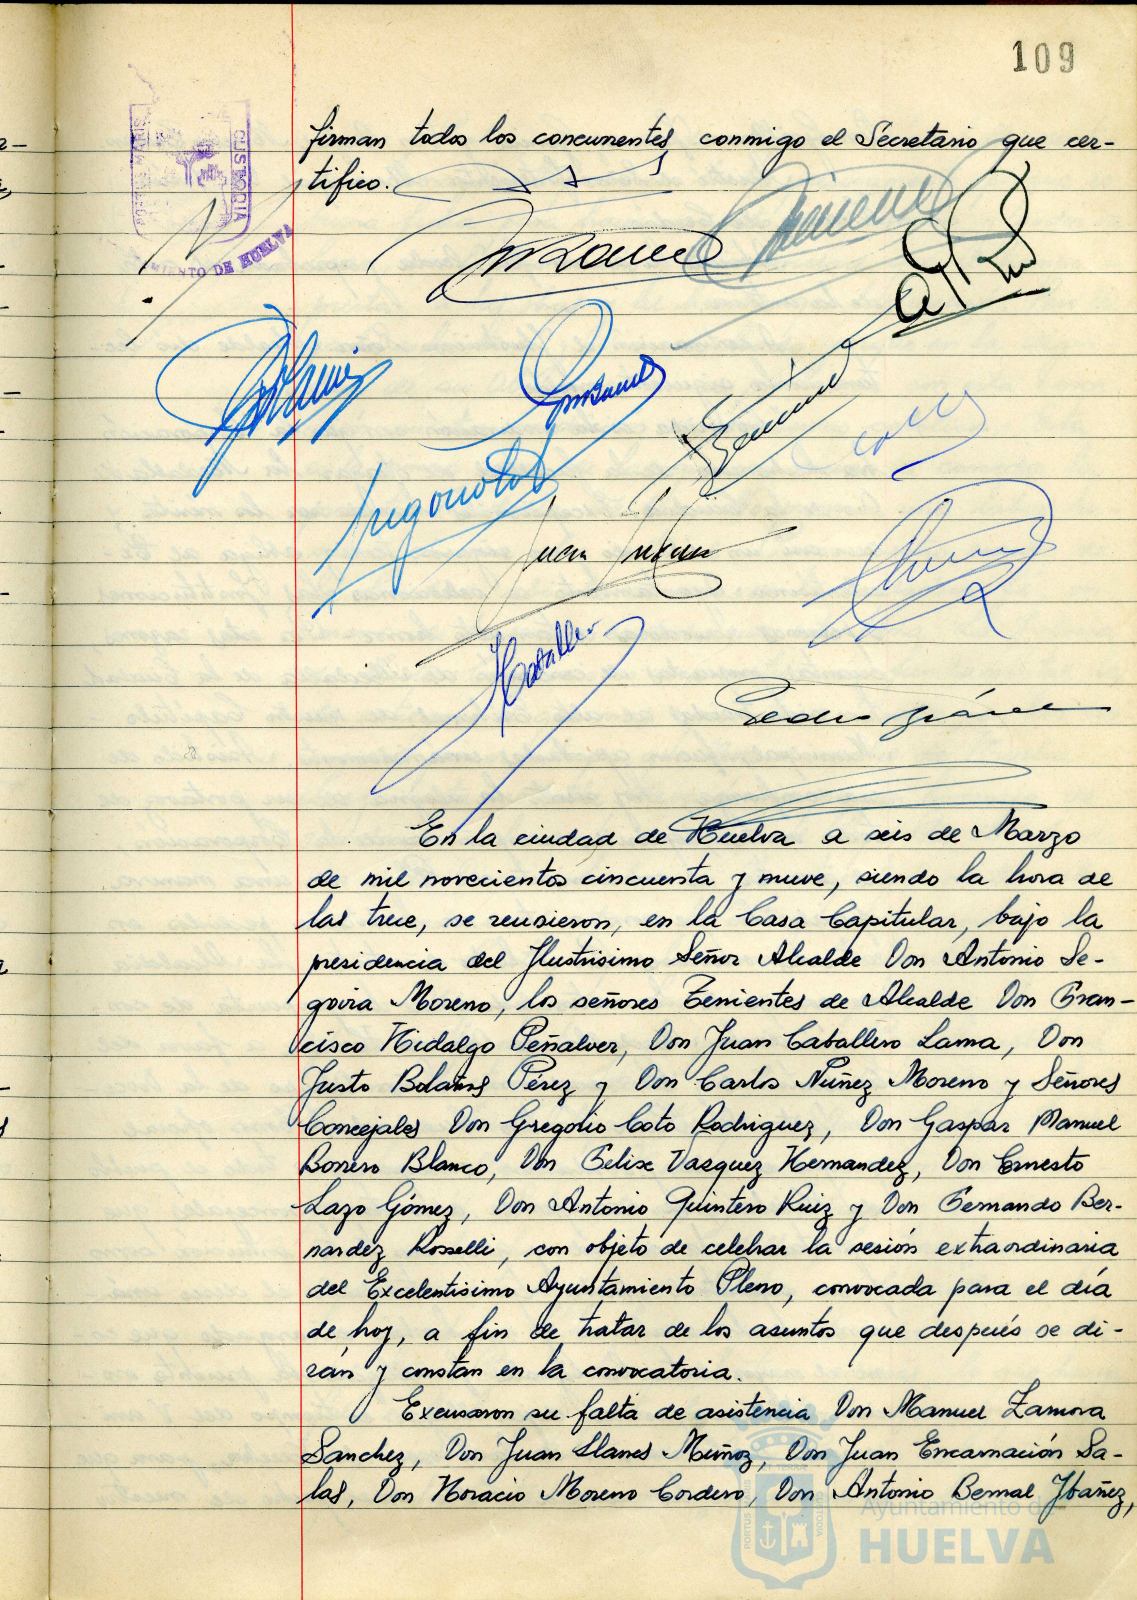 109
firman todos los concurrentes, conmigo el Secretario que cer-
tifico.
CUSTODIA
MIENTO DE HUELVA
Juan
Caballero
Pedro
En la ciudad de Huelva a seis de Marzo
de mil novecientos cincuenta y nueve, siendo la hora de
las trece, se reunieron, en la Casa Capitular, bajo la
presidencia del Ilustrisimo Señor Alcalde Don Antonio Se-
govia Moreno, los señores Tenientes de Alcalde Don Fran-
cisco Hidalgo Peñalver, Don Juan Caballero Lama, Don
Justo Bolaños Pérez y Don Carlos Núñez Moreno y Señores
Concejales Don Gregorio Coto Rodriguez, Don Gaspar Manuel
Borrero Blanco, Don Felix Vazquez Hernandez, Don Ernesto
Lazo Gómez, Don Antonio Quintero Ruiz y Don Fernando Ber-
nardez Rosselli, con objeto de celebrar la sesión extraordinaria
del Excelentisimo Ayuntamiento Pleno, convocada para el día
de hoy, a fin de tratar de los asuntos que después se di-
rán y constan en la convocatoria.
Excusaron su falta de asistencia Don Manuel Zamora
Sanchez, Don Juan Llanes Muñoz, Don Juan Encarnación Sa-
las, Don Horacio Moreno Cordero, Don Antonio Bernal Ibañez,
Ayuntamiento de
HUELVA